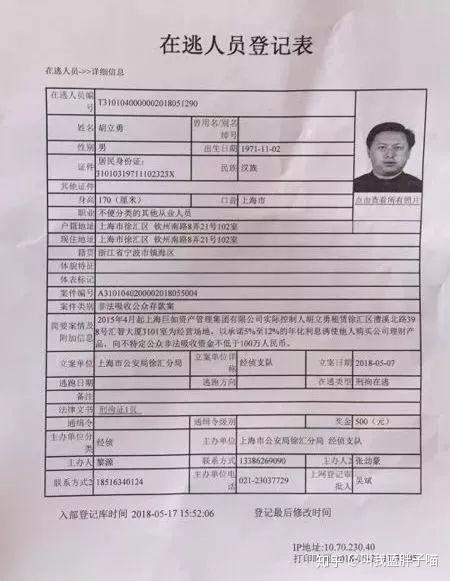 在逃人员登记表
在逃人员->>详细信息
在逃人员编号 T3101040000002018051290
姓名 胡立勇 曾用名/别名绰号
性别 男 出生日期 1971-11-02
证件 居民身份证: 31010319711102323X 民族 汉族
其他证件
身高 170（厘米） 口音 上海市
点击查看所有照片
职业 不便分类的其他从业人员
户籍地址 上海市徐汇区 钦州南路8弄21号102室
现住地址 上海市徐汇区 钦州南路8弄21号102室
籍贯 浙江省宁波市镇海区
体貌特征
体表标记
案件编号 A3101040200002018055004
案件类别 非法吸收公众存款案
简要案情及附加信息 2015年4月起上海巨如资产管理集团有限公司实际控制人胡立勇租赁徐汇区漕溪北路39
8号汇智大厦3101室为经营场地，以承诺5%至12%的年化利息诱使他人购买公司理财产
品，向不特定公众非法吸收资金不低于100万人民币。
立案单位 上海市公安局徐汇分局 立案单位详称 经侦支队 立案日期 2018-05-07
逃跑日期 逃跑方向 在逃类型 刑拘在逃
备注
法律文书 刑拘证1页
通缉令 通缉令级别 奖金 500（元）
主办单位分类 经侦 主办单位 上海市公安局徐汇分局 经侦支队
主办人 黎源 联系方式 13386269090 主办人2 张劼豪
联系方式2 18516340124 主办单位电话 021-23037729 上网登记审批人 吴斌
入部登记库时间 2018-05-17 15:52:06 登记最后修改时间
IP地址:10.70.230.40
打印时间:2018
知乎 @
胖子喵